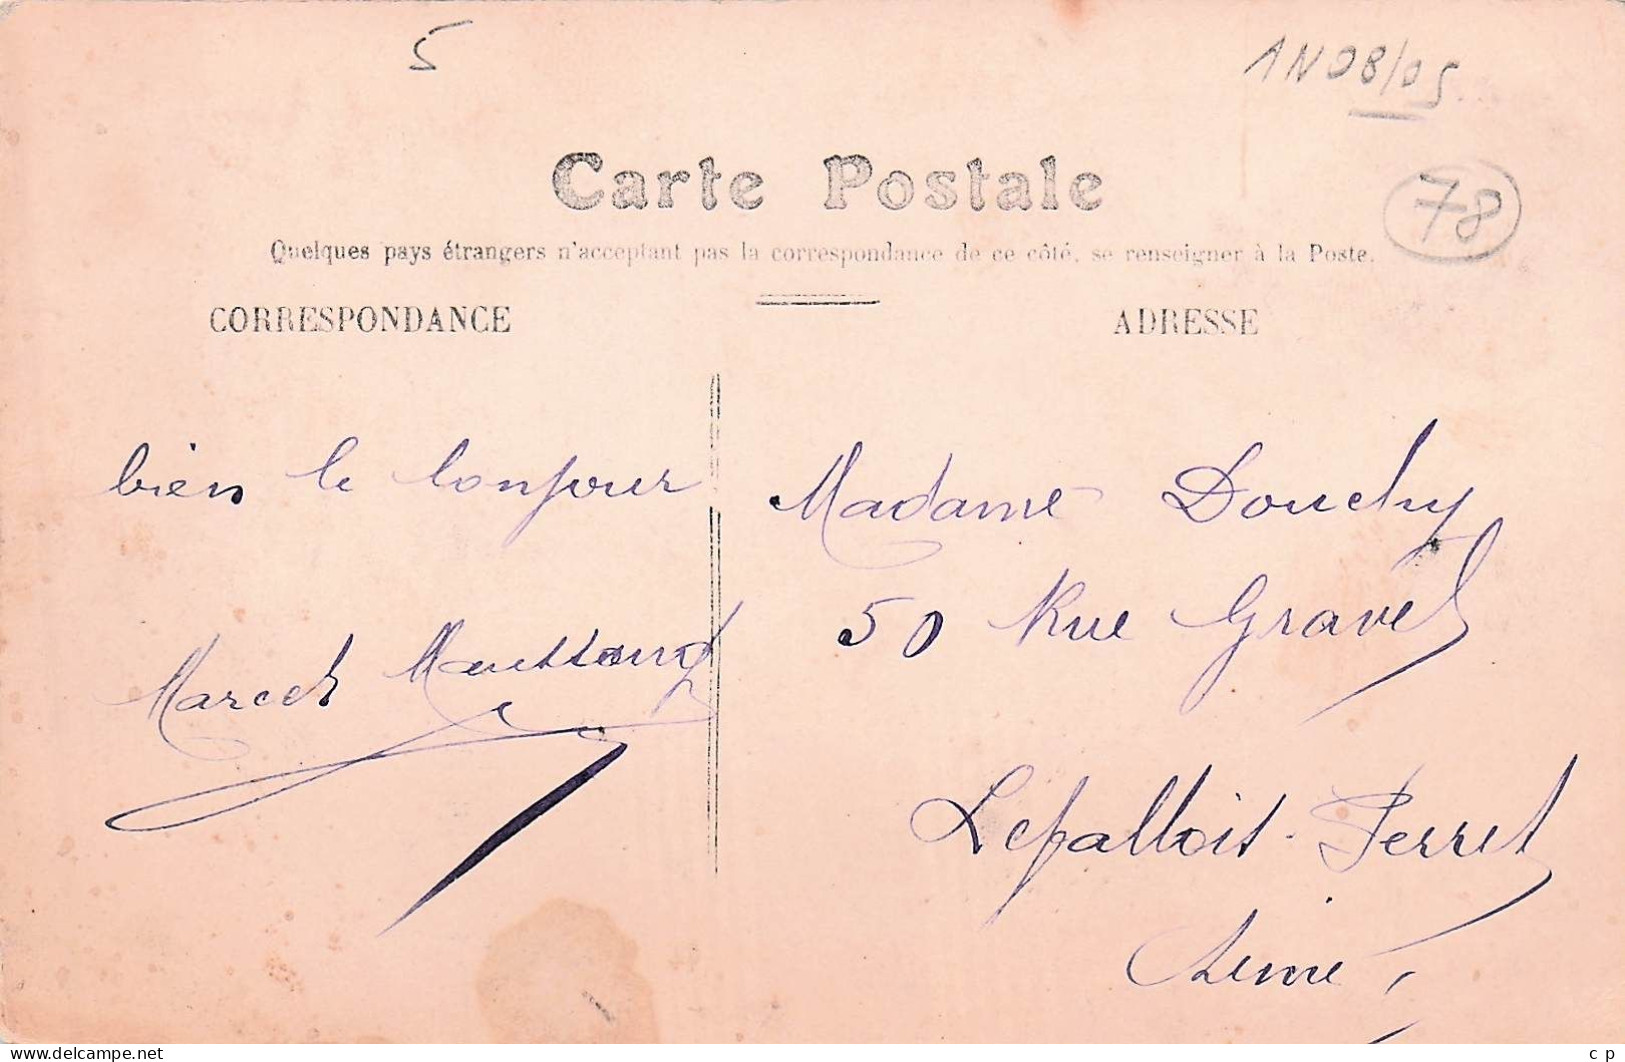 5
1N08/05
78
Carte Postale
Quelques pays étrangers n'acceptant pas la correspondance de ce côté, se renseigner à la Poste.
CORRESPONDANCE
ADRESSE
bien le bonjour
Marcel
Madame Douchy
50 Rue Gravel
Lepallois-Perret
Seine
delcampe.net
c p